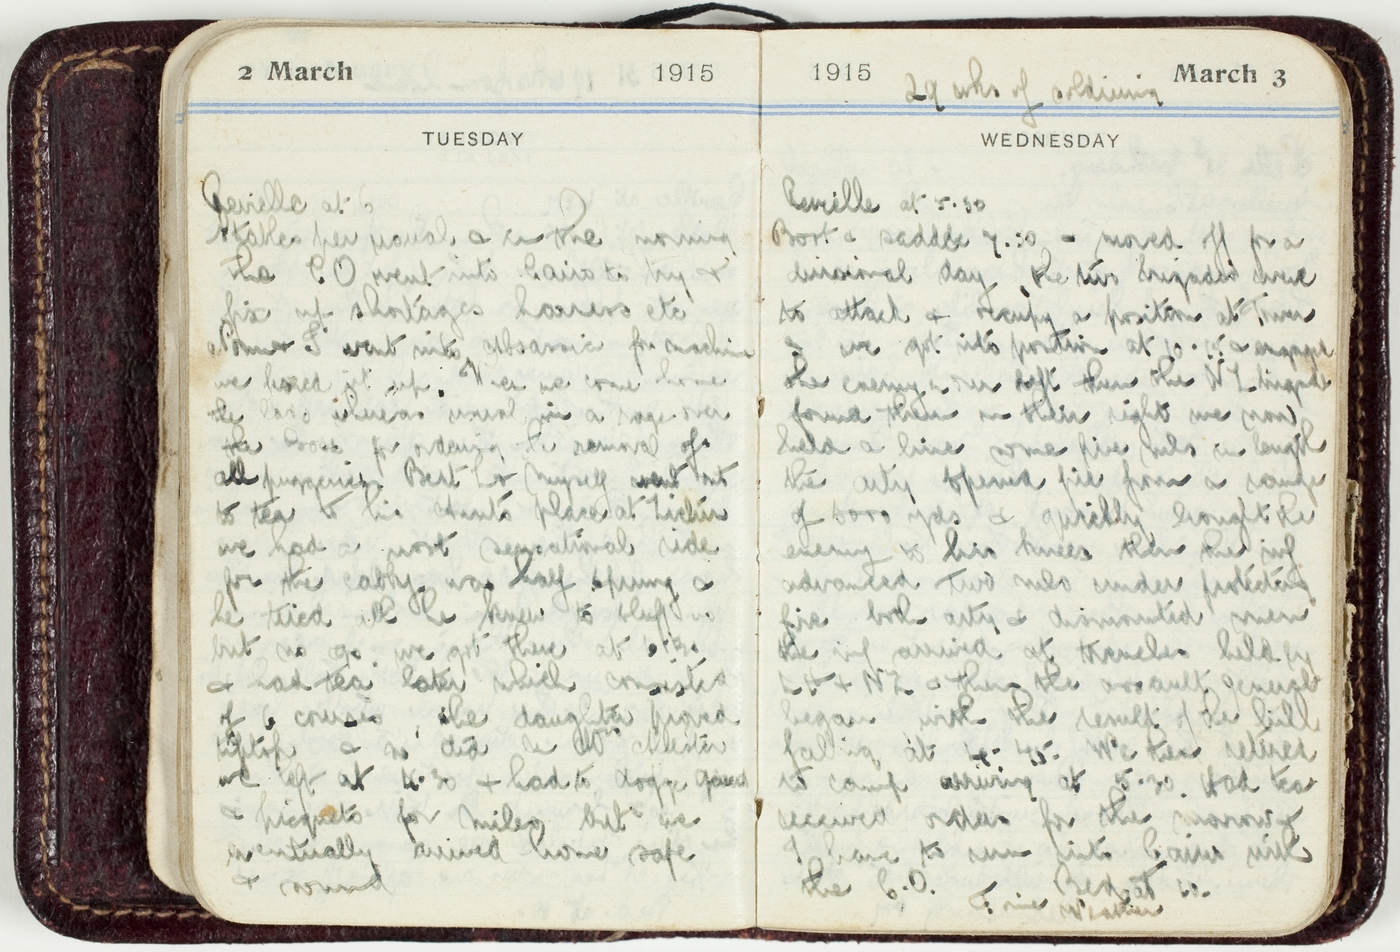 2 March 1915
TUESDAY
Reveille at 6
Stables per usual & in the morning
the C.O went into Cairo to try &
fix up shortages harness etc
& I went into for machine
we fixed it up. When we come home
the as usual in a rage over
the for ordering the removal of
all Bert L & Myself went out
to tea to his Aunts place at
we had a most sensational ride
for the cabby was half sprung &
he tried all he knew to bluff us
but no go, we got there at
& had tea later which consisted
of 6 courses, the daughter proved
tiptop & so did the
we left at & had to dodge guard
& picquets for miles but we
eventually arrived home safe
& sound
1915 March 3
29 wks of soldiering
WEDNESDAY
Reveille at 5.30
Boot & saddle 7.30 & moved off for a
divisional day, the two brigades were
to attack & occupy a position at Tower
& we got into position at & engaged
the enemy on left then the NZ brigade
formed them on their right we now
held a line some five miles in length
the arty opened fire from a range
of 5000 yds & quickly brought the
enemy to his knees then the inf
advanced two miles under protective
fire both arty & dismounted men
the inf arrived at trenches held by
LH & NZ & then the assault general
began with the result of the hill
falling at 4.45. We then retired
to camp arriving at 5.50. Had tea
received orders for the morrow
I have to run into Cairo with
the C.O. Bed at 10.
Fine Weather